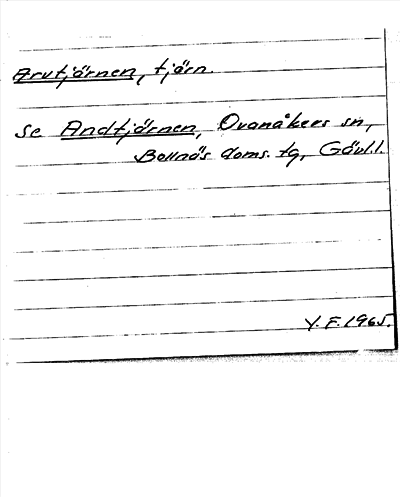 Arvtjärnen, tjärn.
se Andtjärnen, Ovanåkers sn,
Bollnäs doms. tg, Gävl.l.
Y. F. 1965.